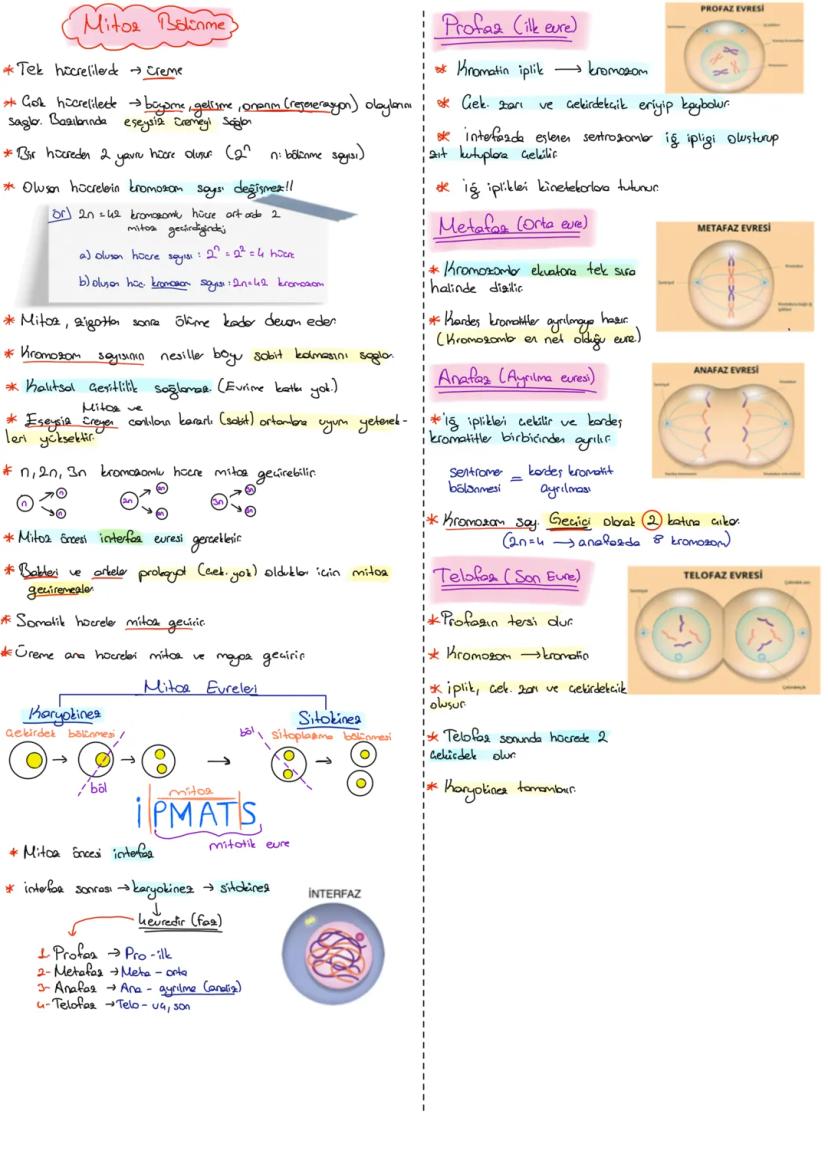 Mitoz Bölünme
* Tek hücrelilerde → üreme
* Çok hücrelilerde → büyüme, gelişme, onarım (rejenerasyon) olaylarını
sağlar. Bazılarında eşeysiz üremeyi sağlar
* Bir hücreden 2 yavru hücre oluşur (2ⁿ n: bölünme sayısı)
* Oluşan hücrelerin kromozom sayısı değişmez!!
ör) 2n=42 kromozomlu hücre art arda 2
mitoz geçirdiğinde;
a) oluşan hücre sayısı: 2ⁿ = 2² = 4 hücre
b) oluşan hüc. kromozom sayısı: 2n=42 kromozom
* Mitoz, zigottan sonra ölüme kadar devam eder.
* Kromozom sayısının nesiller boyu sabit kalmasını sağlar.
* Kalıtsal çeşitlilik sağlamaz. (Evrime katkı yok.)
Mitoz ve
* Eşeysiz üreyen canlıların kararlı (sabit) ortamlara uyum yetenek-
leri yüksektir.
* n, 2n, 3n kromozomlu hücre mitoz geçirebilir.
n n n 2n 2n 2n 3n 3n 3n
* Mitoz öncesi interfaz evresi gerçekleşir.
* Bakteri ve arkeler prokaryot (çek. yok) oldukları için mitoz
geçiremezler.
* Somatik hücreler mitoz geçirir.
* Üreme ana hücreleri mitoz ve mayoz geçirir.
Mitoz Evreleri
Karyokinez
Çekirdek bölünmesi
böl
Sitokinez
Sitoplazma bölünmesi
böl
mitoz
iPMATS
mitotik evre
* Mitoz öncesi interfaz
* interfaz sonrası → karyokinez → sitokinez
4 evredir (faz)
1- Profaz → Pro - ilk
2- Metafaz → Meta - orta
3- Anafaz → Ana - ayrılma (analiz)
4- Telofaz → Telo - uç, son
İNTERFAZ
Profaz (ilk evre)
PROFAZ EVRESİ
* Kromatin iplik → kromozom
* Çek. zarı ve çekirdekçik eriyip kaybolur.
* interfazda eşlenen sentrozomlar iğ ipliği oluşturup
zıt kutuplara çekilir.
* iğ iplikleri kinetekorlara tutunur.
Metafaz (Orta evre)
METAFAZ EVRESİ
* Kromozomlar ekvatora tek sıra
halinde dizilir.
* Kardeş kromatitler ayrılmaya hazır.
(Kromozomlar en net olduğu evre)
Anafaz (Ayrılma evresi)
ANAFAZ EVRESİ
* İğ iplikleri çekilir ve kardeş
kromatitler birbirinden ayrılır.
sentromer = kardeş kromatit
bölünmesi ayrılması
* Kromozom say. Geçici olarak 2 katına çıkar.
(2n=4 → anafazda 8 kromozom)
Telofaz (Son Evre)
TELOFAZ EVRESİ
* Profazın tersi olur.
* Kromozom → kromatin
* iplik, çek. zarı ve çekirdekcik
oluşur.
* Telofaz sonunda hücrede 2
çekirdek olur.
* Karyokinez tamamlanır.